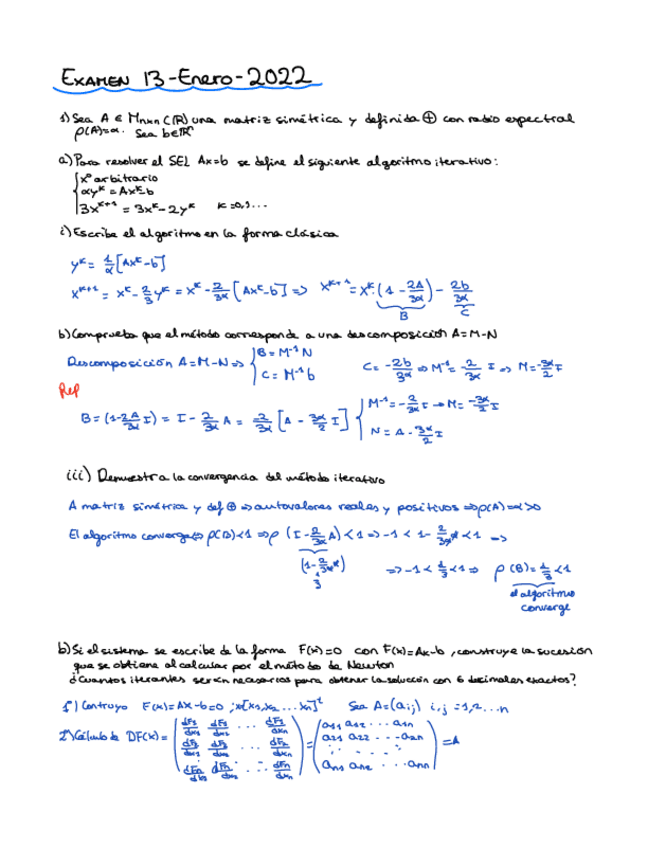 EXAMEN 13-Enero-2022
1) Sea A ∈ Mnxn(ℝ) una matriz simétrica y definida ⊕ con radio espectral
ρ(A)=α. Sea b∈ℝⁿ
a) Para resolver el SEL Ax=b se define el siguiente algoritmo iterativo:
x⁰ arbitrario
αyᵏ = Axᵏ-b
3xᵏ⁺¹ = 3xᵏ-2yᵏ k=0,1...
i) Escribe el algoritmo en la forma clásica
yᵏ = 1/α [Axᵏ-b]
xᵏ⁺¹ = xᵏ - 2/3 yᵏ = xᵏ - 2/3α [Axᵏ-b] => xᵏ⁺¹ = xᵏ·(1 - 2A/3α) - 2b/3α
B C
b) Comprueba que el método corresponde a una descomposición A=M-N
Descomposición A=M-N => { B = M⁻¹N C = M⁻¹b C = -2b/3α => M⁻¹ = -2/3α I => M = -3α/2 I
Rep
B = (1-2A/3α I) = I - 2/3α A = -2/3α [A - 3α/2 I] { M⁻¹ = -2/3α I → M = -3α/2 I
N = A - 3α/2 I
iii) Demuestra la convergencia del método iterativo
A matriz simétrica y def ⊕ => autovalores reales y positivos => ρ(A)=α>0
El algoritmo converge <=> ρ(B)<1 => ρ (I - 2/3α A) < 1 => -1 < 1 - 2/3α α < 1 =>
(1 - 2/3α α) => -1 < 1/3 < 1 => ρ(B) = 1/3 < 1
1/3 el algoritmo
converge
b) Si el sistema se escribe de la forma F(x)=0 con F(x)=Ax-b, construye la sucesión
que se obtiene al calcular por el método de Newton
¿Cuantos iterantes serán necesarios para obtener la solución con 6 decimales exactos?
1º) Contruyo F(x)=AX-b=0 ; x[x₁,x₂ ... xₙ]ᵗ Sea A=(aᵢⱼ) i,j =1,2...n
2º) Cálculo de DF(x) = ( dF₁/dx₁ dF₁/dx₂ ... dF₁/dxₙ ) = ( a₁₁ a₁₂ ... a₁ₙ ) = A
dF₂/dx₁ dF₂/dx₂ ... dF₂/dxₙ a₂₁ a₂₂ ... a₂ₙ
dFₙ/dx₁ dFₙ/dx₂ ... dFₙ/dxₙ aₙ₁ aₙ₂ ... aₙₙ